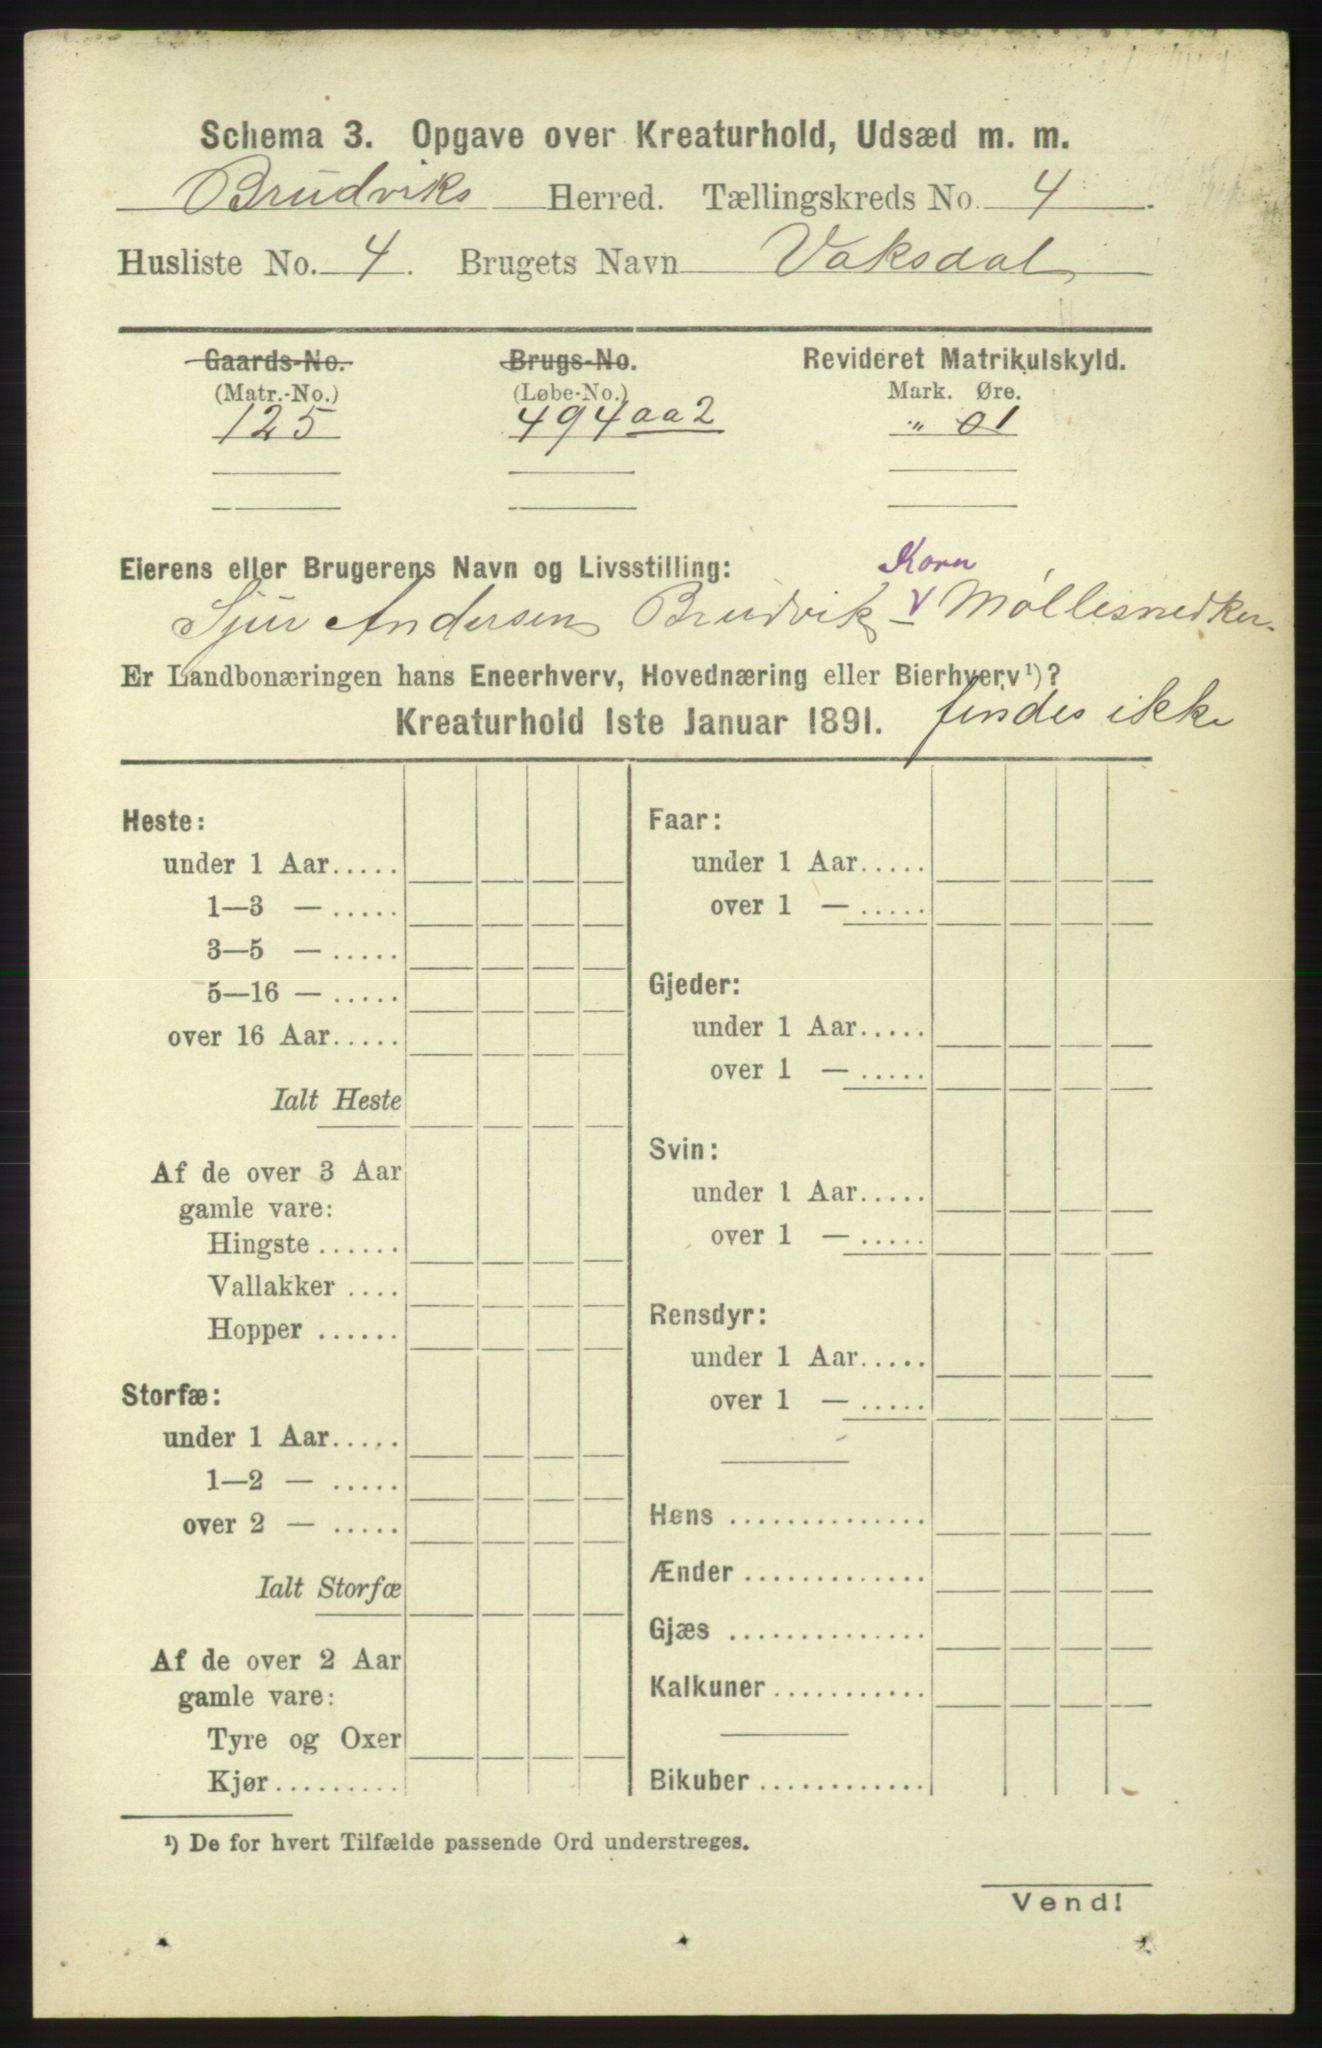 Schema 3. Opgave over Kreaturhold, Udsæd m. m.
Brudviks Herred. Tællingskreds No. 4.
Husliste No. 4. Brugets Navn Vaksdal
Gaards-No. Brugs-No. Revideret Matrikulskyld.
(Matr.-No.) (Løbe-No.) Mark. Øre.
125 494 aa 2 " 01
Eierens eller Brugerens Navn og Livsstilling: Korn
Sjur Andersen Brudvik v Møllesnedker.
Er Landbonæringen hans Eneerhverv, Hovednæring eller Bierhverv¹)?
Kreaturhold 1ste Januar 1891. findes ikke
Heste:
under 1 Aar.....
1—3 — .....
3—5 — .....
5—16 — .....
over 16 Aar.....
Ialt Heste
Af de over 3 Aar
gamle vare:
Hingste ......
Vallakker ....
Hopper ......
Storfæ:
under 1 Aar.....
1—2 — .....
over 2 — .....
Ialt Storfæ
Af de over 2 Aar
gamle vare:
Tyre og Oxer
Kjør.........
Faar:
under 1 Aar.....
over 1 — .....
Gjeder:
under 1 Aar.....
over 1 — .....
Svin:
under 1 Aar.....
over 1 — .....
Rensdyr:
under 1 Aar.....
over 1 — .....
Høns ..............
Ænder .............
Gjæs ..............
Kalkuner...........
Bikuber ............
¹) De for hvert Tilfælde passende Ord understreges.
Vend!